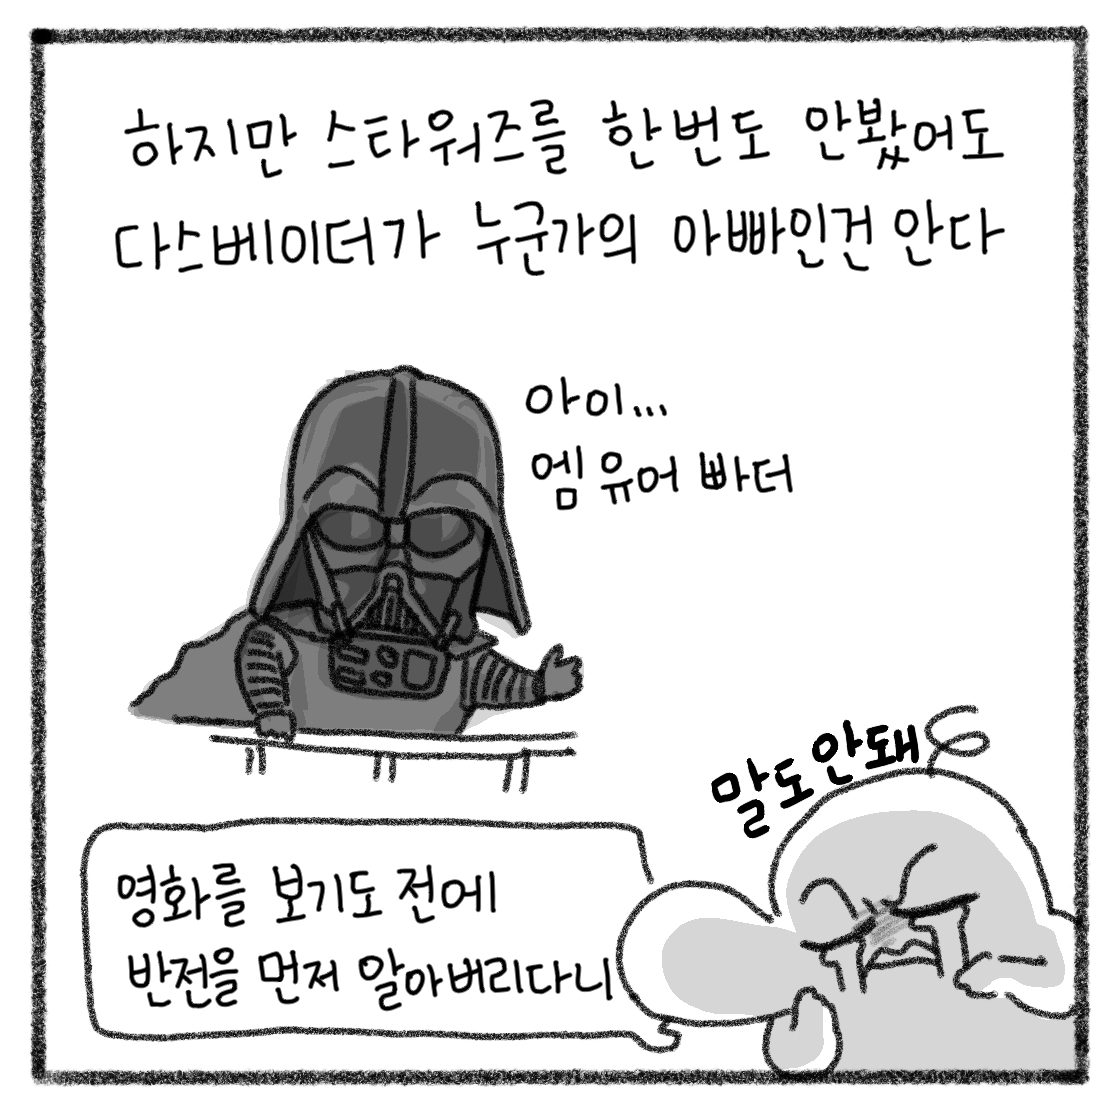 하지만 스타워즈를 한번도 안봤어도
다스베이더가 누군가의 아빠인건 안다
아이...
엠 유어 빠더
말도안돼
영화를 보기도 전에
반전을 먼저 알아버리다니